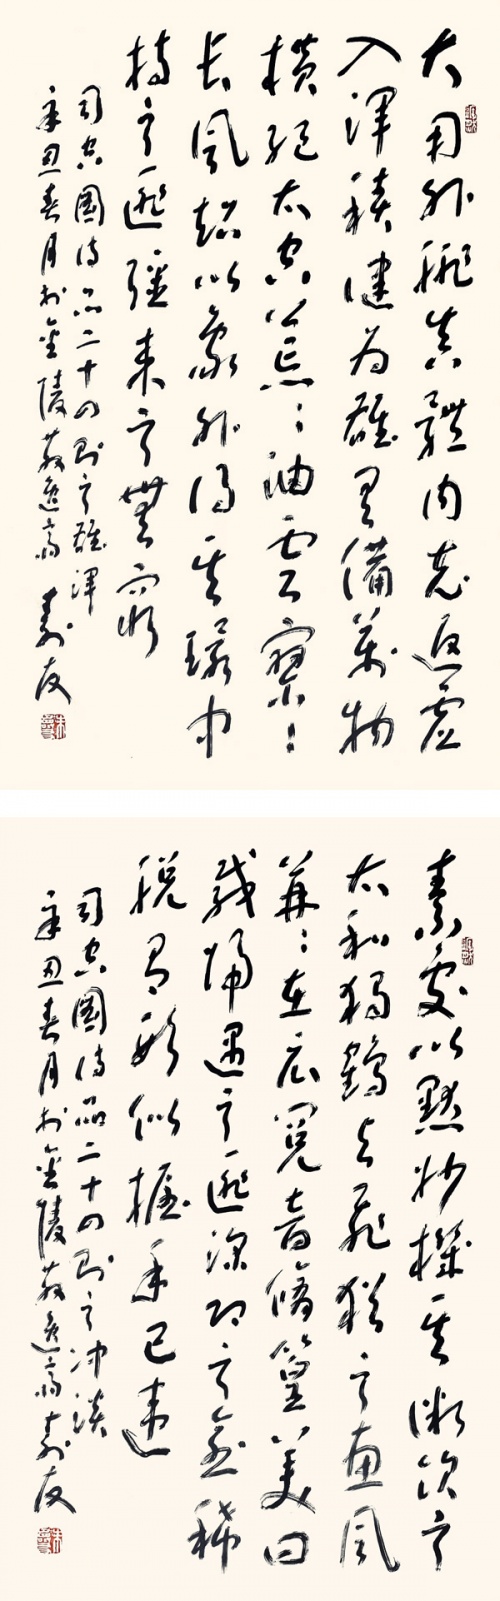 大用外腓真體內充返虛
入渾積健為雄具備萬物
橫絕太空荒〻油雲寥〻
長風超以象外得其環中
持之匪強來之無窮
司空圖詩品二十四則之雄渾
辛丑春月於金陵散逸齋 壽友
素處以默妙機其微飲之
太和獨鶴與飛猶之惠風
苒〻在衣閱音脩篁美曰
載歸遇之匪深即之愈稀
脫有形似握手已違
司空圖詩品二十四則之冲淡
辛丑春月於金陵散逸齋壽友